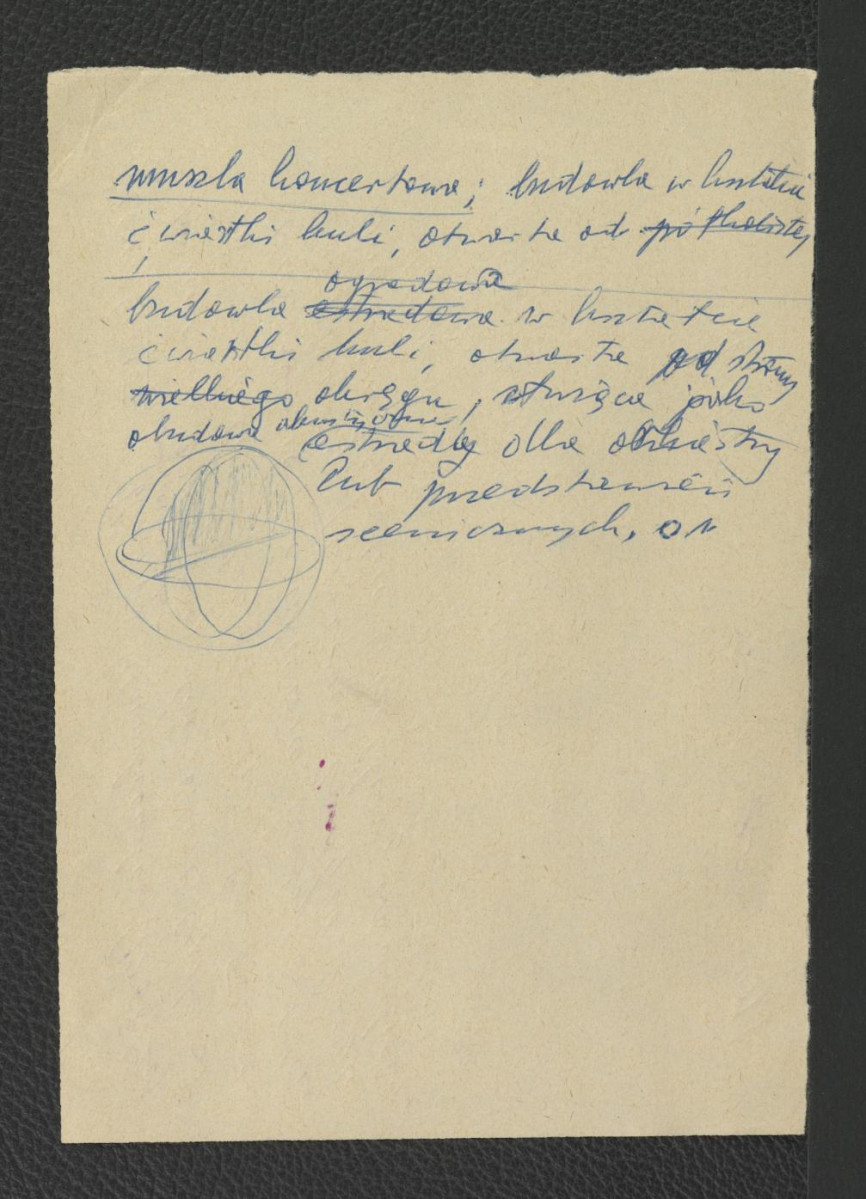 muszla koncertowa; budowla w kształcie
ćwiartki kuli, otwarta od półkolistej
ogrodowa
budowla estradowa w kształcie
ćwiartki kuli, otwarta od strony
wielkiego okręgu, służąca jako
obudowa akustyczna estrady dla orkiestry
lub przedstawień
scenicznych, or